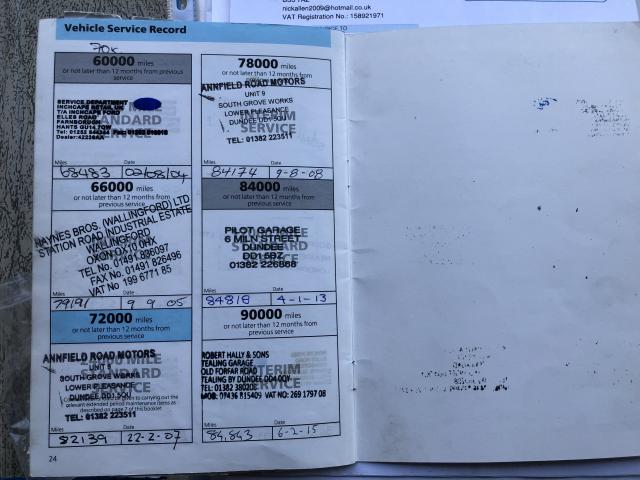 nickallen2009@hotmail.co.uk
VAT Registration No.: 158921971
Vehicle Service Record
70K
60000 miles
or not later than 12 months from previous
service
SERVICE DEPARTMENT
INCHCAPE RETAIL UK
T/A INCHCAPE FORD
ELLES ROAD
FARNBOROUGH
HANTS GU14 7QW
STANDARD
SERVICE
Miles
Date
68483
02/08/04
78000 miles
or not later than 12 months from
ANNFIELD ROAD MOTORS
UNIT 9
SOUTH GROVE WORKS
LOWER PLEASANCE
DUNDEE DD1 5QN
TEL: 01382 223511
INTERIM
SERVICE
Miles
Date
84174
9-8-08
66000 miles
or not later than 12 months from
previous service
HAYNES BROS. (WALLINGFORD) LTD
STATION ROAD INDUSTRIAL ESTATE
WALLINGFORD
OXON OX10 0HX
TEL No. 01491 836097
FAX No. 01491 826496
VAT No 199 6771 85
Miles
Date
79191
9 9 05
84000 miles
or not later than 12 months from
previous service
PILOT GARAGE
6 MILN STREET
DUNDEE
DD1 5BZ
01382 226888
Miles
Date
84818
4-1-13
72000 miles
or not later than 12 months from
previous service
ANNFIELD ROAD MOTORS
UNIT 9
SOUTH GROVE WORKS
LOWER PLEASANCE
DUNDEE DD1 5QN
TEL: 01382 223511
MILE
STANDARD
SERVICE
relevant extended period maintenance items as
described on page 7 of this booklet
Miles
Date
82139
22-2-07
90000 miles
or not later than 12 months from
previous service
ROBERT HALLY & SONS
TEALING GARAGE
OLD FORFAR ROAD
TEALING BY DUNDEE DD4 0QY
INTERIM
SERVICE
VAT NO: 269 1797 08
Miles
Date
84,843
6-2-15
24